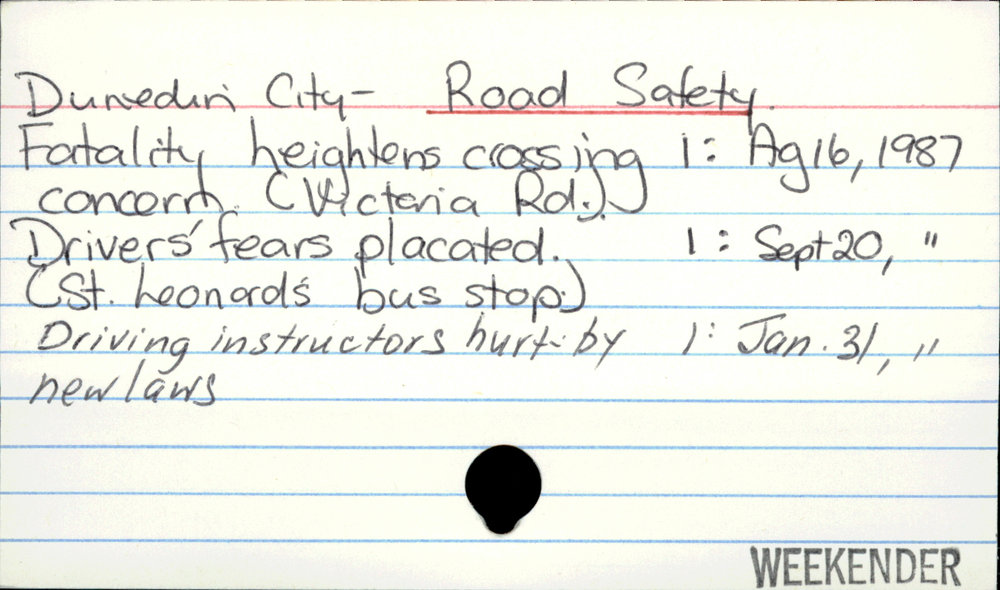 Dunedin City- Road Safety.
Fatality heightens crossing 1: Ag 16, 1987
concern. (Victoria Rd.)
Drivers' fears placated. 1: Sept 20, "
(St. Leonards bus stop.)
Driving instructors hurt by 1: Jan. 31, "
new laws
WEEKENDER